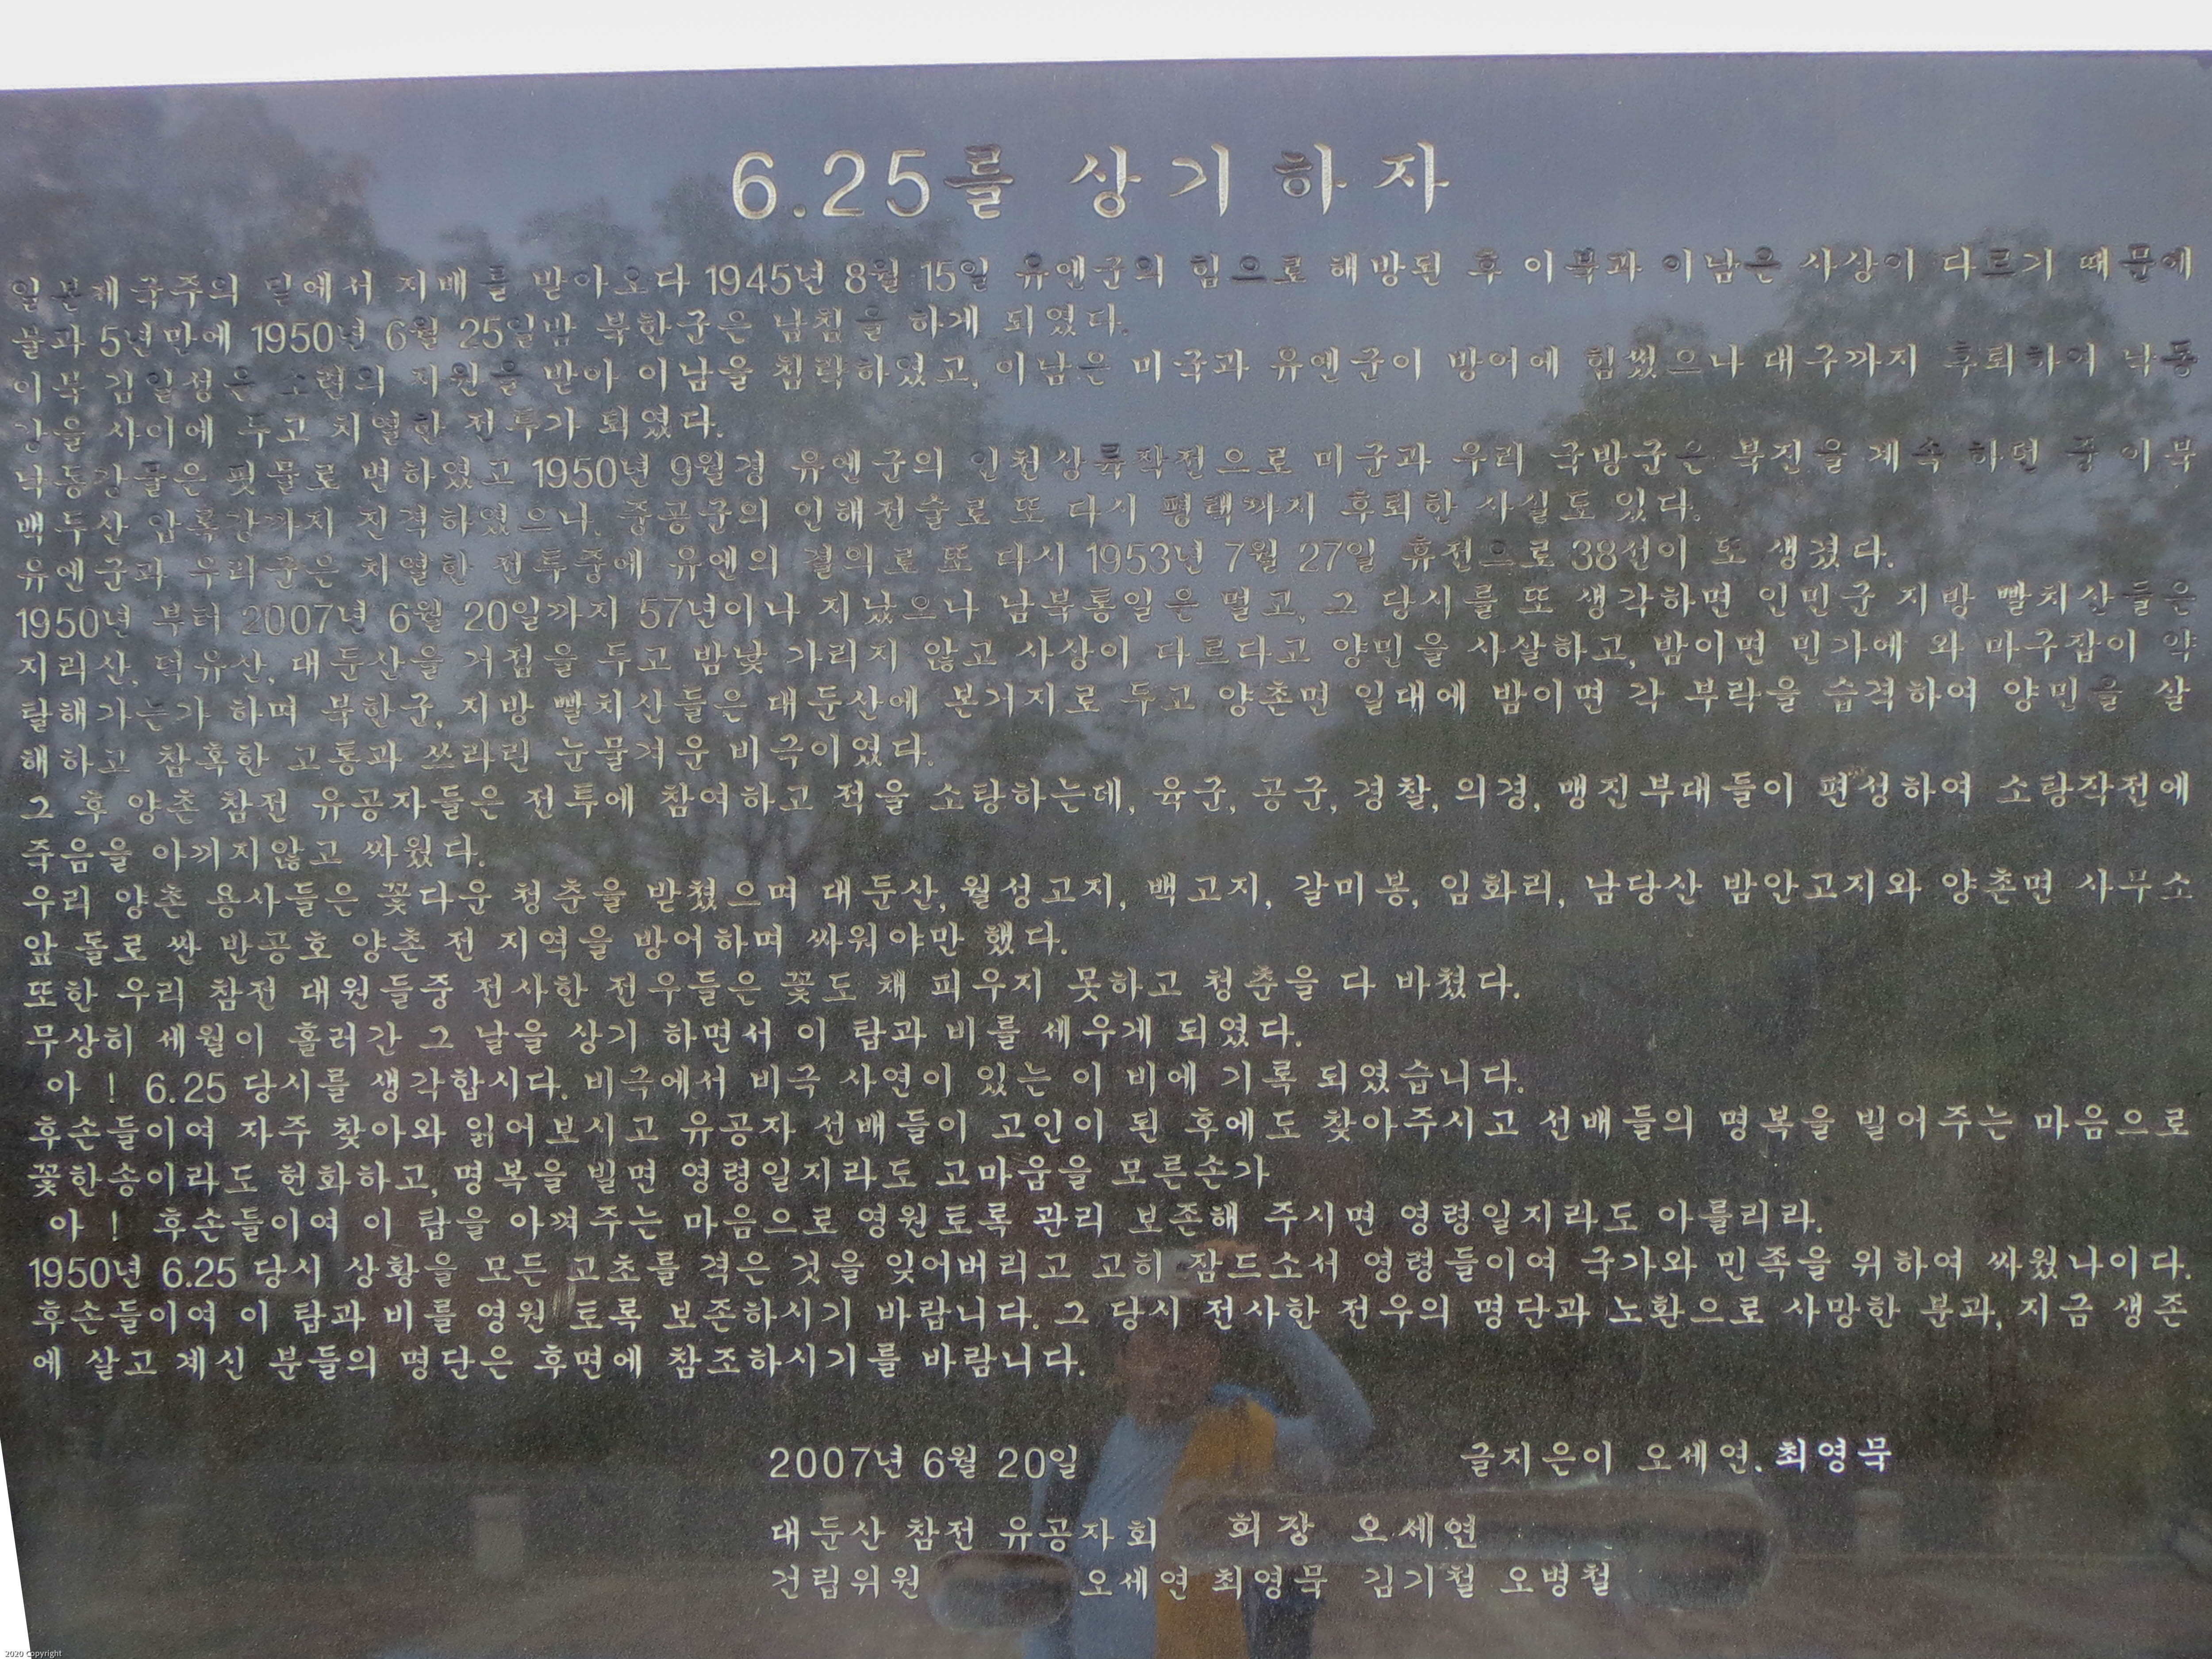 6.25를 상기하자
일본제국주의 밑에서 지배를 받아오다 1945년 8월 15일 유엔군의 힘으로 해방된 후 이북과 이남은 사상이 다르기 때문에
불과 5년만에 1950년 6월 25일밤 북한군은 남침을 하게 되였다.
이북 김일성은 소련의 지원을 받아 이남을 침략하였고, 이남은 미국과 유엔군이 방어에 힘썼으나 대구까지 후퇴하여 낙동
강을 사이에 두고 치열한 전투가 되였다.
낙동강물은 핏물로 변하였고 1950년 9월경 유엔군의 인천상륙작전으로 미군과 우리 국방군은 북진을 계속 하던 중 이북
백두산 압록강까지 진격하였으나, 중공군의 인해전술로 또 다시 평택까지 후퇴한 사실도 있다.
유엔군과 우리군은 치열한 전투중에 유엔의 결의로 또 다시 1953년 7월 27일 휴전으로 38선이 또 생겼다.
1950년 부터 2007년 6월 20일까지 57년이나 지났으나 남북통일은 멀고, 그 당시를 또 생각하면 인민군 지방 빨치산들은
지리산, 덕유산, 대둔산을 거점을 두고 밤낮 가리지 않고 사상이 다르다고 양민을 사살하고, 밤이면 민가에 와 마구잡이 약
탈해가는가 하며 북한군, 지방 빨치산들은 대둔산에 본거지로 두고 양촌면 일대에 밤이면 각 부락을 습격하여 양민을 살
해하고 참혹한 고통과 쓰라린 눈물겨운 비극이였다.
그 후 양촌 참전 유공자들은 전투에 참여하고 적을 소탕하는데, 육군, 공군, 경찰, 의경, 맹진부대들이 편성하여 소탕작전에
죽음을 아끼지않고 싸웠다.
우리 양촌 용사들은 꽃다운 청춘을 받쳤으며 대둔산, 월성고지, 백고지, 갈미봉, 임화리, 남당산 밤안고지와 양촌면 사무소
앞 돌로 싼 반공호 양촌 전 지역을 방어하며 싸워야만 했다.
또한 우리 참전 대원들중 전사한 전우들은 꽃도 채 피우지 못하고 청춘을 다 바쳤다.
무상히 세월이 흘러간 그 날을 상기 하면서 이 탑과 비를 세우게 되였다.
아 ! 6.25 당시를 생각합시다. 비극에서 비극 사연이 있는 이 비에 기록 되였습니다.
후손들이여 자주 찾아와 읽어보시고 유공자 선배들이 고인이 된 후에도 찾아주시고 선배들의 명복을 빌어주는 마음으로
꽃한송이라도 헌화하고, 명복을 빌면 영령일지라도 고마움을 모른손가
아 ! 후손들이여 이 탑을 아껴주는 마음으로 영원토록 관리 보존해 주시면 영령일지라도 아를리라.
1950년 6.25 당시 상황을 모든 고초를 격은 것을 잊어버리고 고히 잠드소서 영령들이여 국가와 민족을 위하여 싸웠나이다.
후손들이여 이 탑과 비를 영원 토록 보존하시기 바람니다. 그 당시 전사한 전우의 명단과 노환으로 사망한 분과, 지금 생존
에 살고 계신 분들의 명단은 후면에 참조하시기를 바람니다.
2007년 6월 20일 글지은이 오세연. 최영묵
대둔산 참전 유공자회 회장 오세연
건립위원 오세연 최영묵 김기철 오병철
2020 Copyright